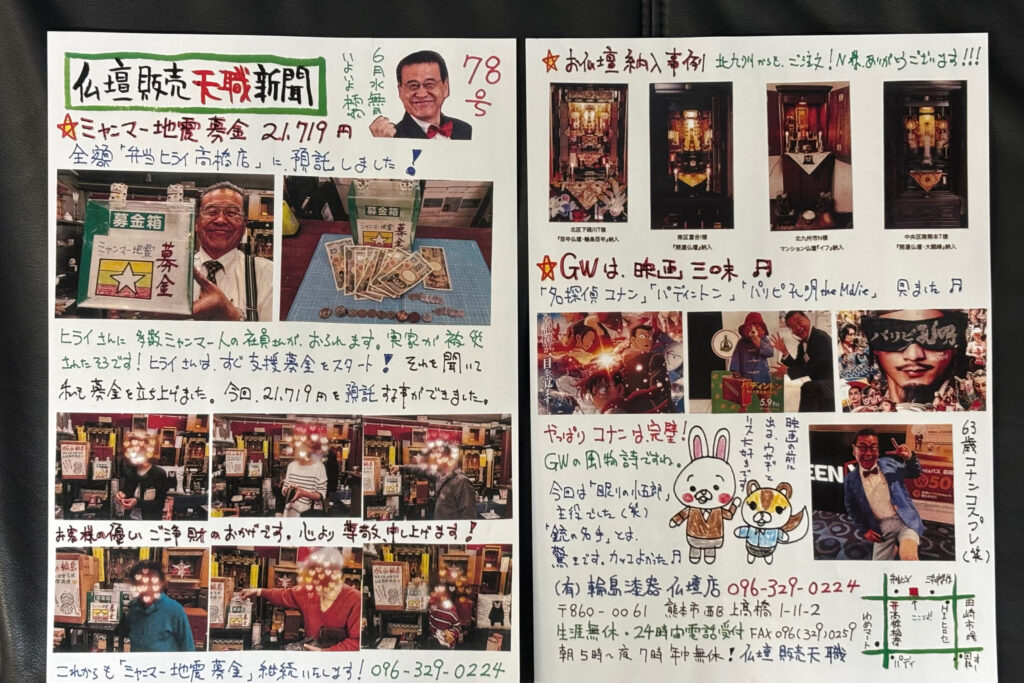 仏壇販売天職新聞
6月水無月
いよいよ梅雨
78号
ミャンマー地震募金 21,719円
全額「弁当ヒライ高橋店」に、預託しました!
募金箱
ミャンマー地震
募金
募金箱
ミャンマー地震
ヒライさんに多数ミャンマー人の社員さんが、おられます。実家が被災
されたそうです!ヒライさんは、すぐ支援募金をスタート!それを聞いて
私も募金を立ち上げました。今回、21,719円を預託する事ができました。
お客様の優しいご浄財のおかげです。心より尊敬申し上げます!
これからも「ミャンマー地震募金」継続いたします!096-329-0224
お仏壇納入事例 北九州からも、ご注文!N様、ありがとうございます!!!
北区下硯川T様
『百年仏壇・輪島百年』納入
南区富合I様
『開運仏壇』納入
北九州市N様
マンション仏壇『イフ』納入
中央区南熊本T様
『開運仏壇・大観峰』納入
GWは、映画三昧♬
「名探偵コナン」「パディントン」「パリピ孔明 the Movie」見ました♬
パディントン
5.9 Fri
パリピ孔明
やっぱりコナンは、完璧!
GWの風物詩ですね。
今回は「眠りの小五郎」
主役でした(笑)
「銃の名手」とは、
驚きです。カッコよかった♬
映画の前に
出る、ウサギと
リス大好きです!
63歳コナンコスプレ(笑)
(有)輪島漆器仏壇店 096-329-0224
〒860-0061 熊本市西区上高橋1-11-2
生涯無休・24時間電話受付 FAX 096(329)0259
朝5時〜夜7時年中無休!仏壇販売天職
田崎市場